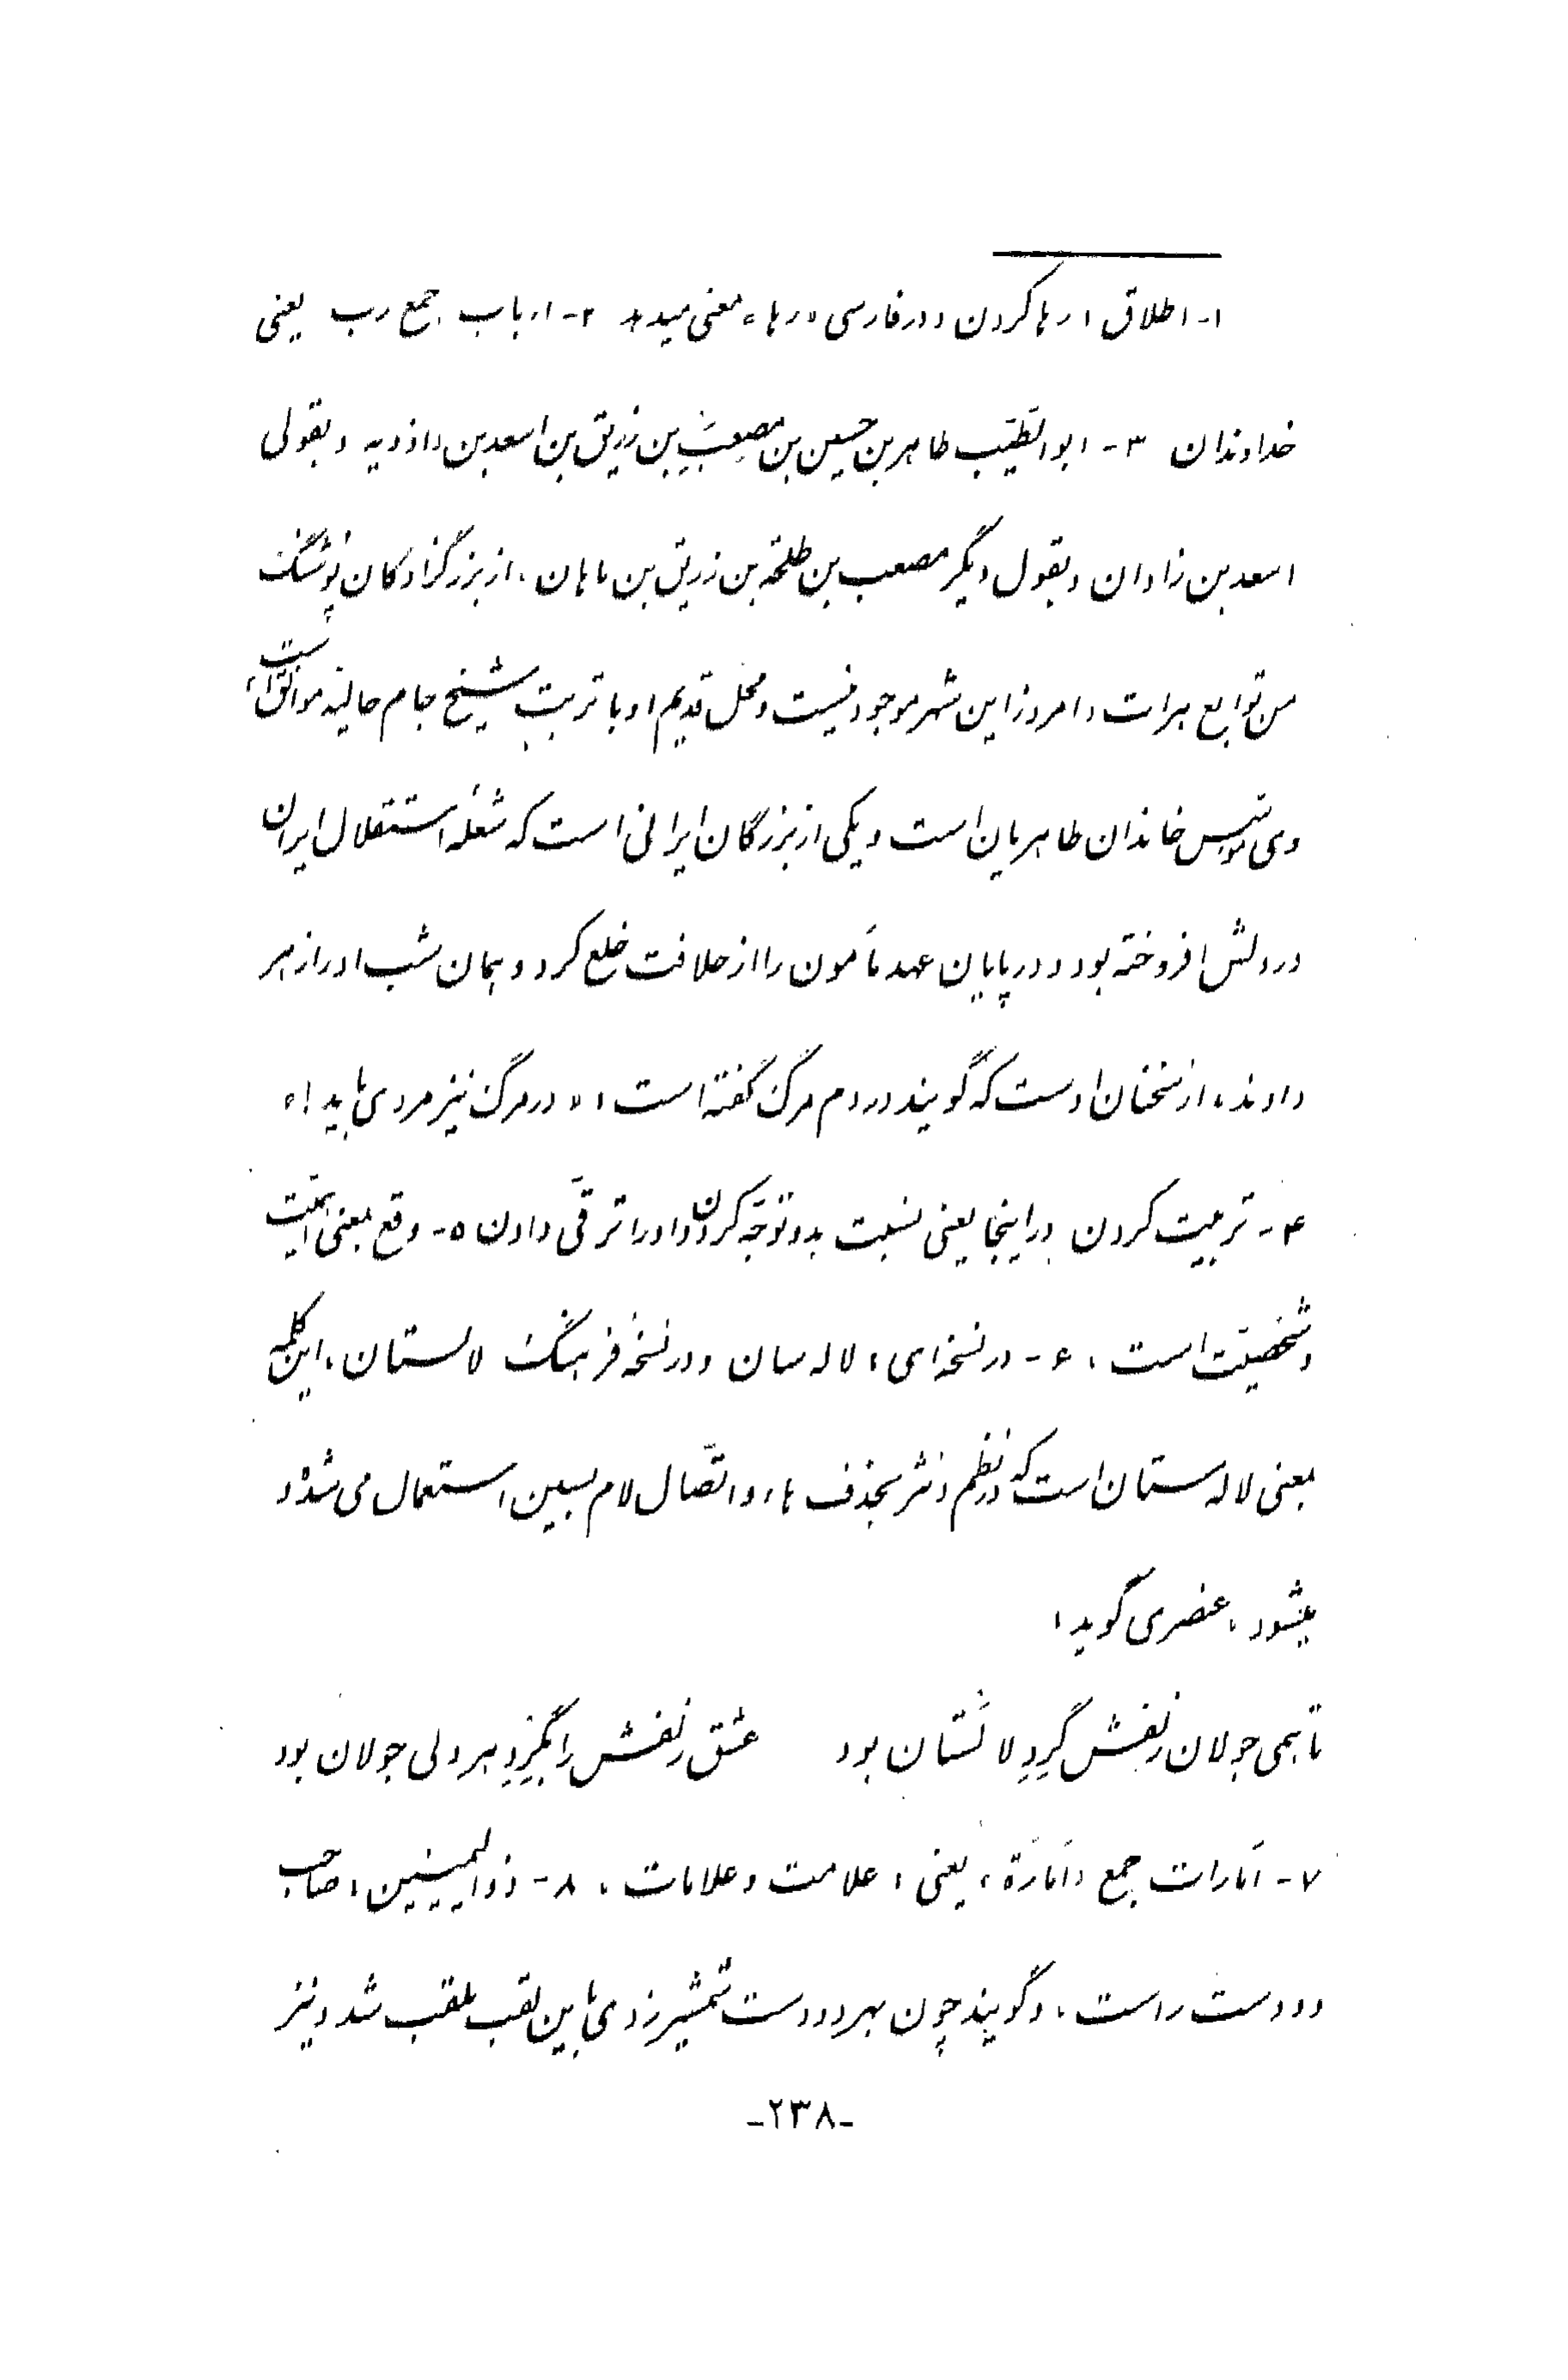 ۱- اطلاق: رها کردن و در فارسی «رها» معنی میدهد ۲- ارباب . جمع رب یعنی
خداوندان ۳- ابوالطیّب طاهر بن حسین بن مصعب بن زریق بن اسعد بن داذویه و بقولی
اسعد بن زادان و بقول دیگر مصعب بن طلحة بن زریق بن ماهان، از بزرگزادگان پوشنگ
من توابع هرات، امروز این شهر موجود نیست و محل قدیم او با تربت شیخ جام حالیه موافق است،
وی مؤسس خاندان طاهریان است و یکی از بزرگان ایرانی است که شعلهٔ استقلال ایران
در دلش افروخته بود و در پایان عهد مأمون را از خلافت خلع کرد و همان شب او را زهر
دادند، از سخنان اوست که گویند در دم مرگ گفته است: «در مرگ نیز مردی باید!»
۴- تربیت کردن در اینجا یعنی نسبت بدو توجّه کردن و او را ترقّی دادن ۵- وقع بمعنی اهمّیت
و شخصیّت است، ۶- در نسخه‌ای: لاله سان و در نسخهٔ فرهنگ لالستان، این کلمه
بمعنی لاله ستان است که در نظم و نثر بحذف هاء و اتّصال لام بسین استعمال می‌شده و
میشود، عنصری گوید:
تا همی جولان زلفش گِردِ لالَستان بود عشق زلفش را بگِردِ هر دلی جولان بود
۷- اَمارات جمع «اَمارَة» یعنی: علامت و علامات، ۸- ذوالیمینین: صاحب
دو دست راست، و گویند چون بهر دو دست شمشیر زدی باین لقب ملقب شد و نیز
-۲۳۸-